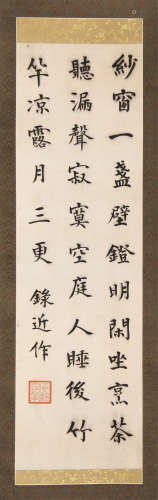 紗窗一盞壁鐙明閑坐烹茶
聽漏聲寂寞空庭人睡後竹
竿凉露月三更 錄近作